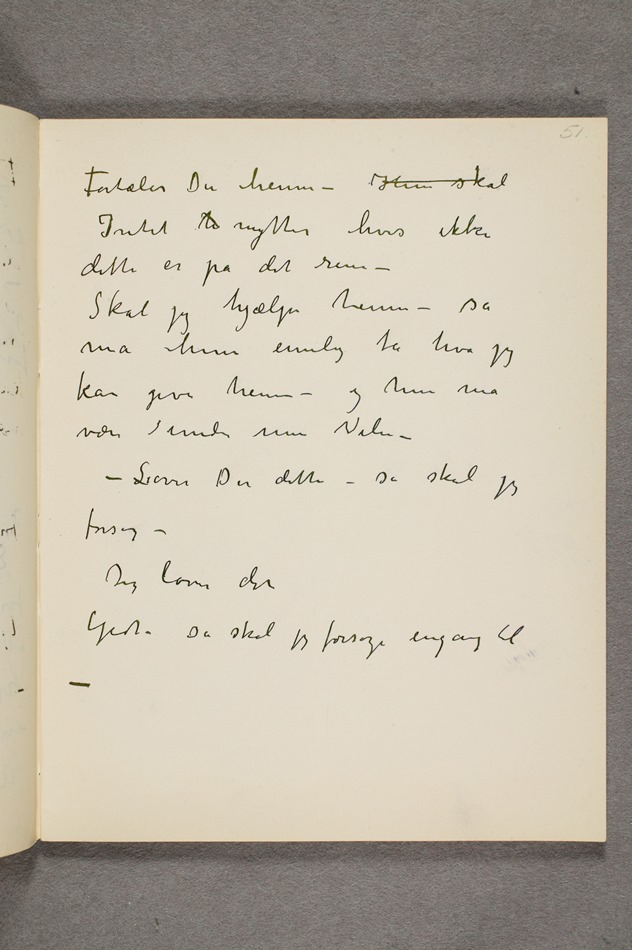 51.
Fortæler Du henne – Hun skal
Intet nytter hvis ikke
dette er på det rene –
Skal jeg hjælpe henne – så
må hun ta hva jeg
kan give henne – og hun må
være min Vilie –
– Lover Du dette – så skal jeg
forsøge –
Jeg lover det
Godt så skal jeg forsøge engang til
–